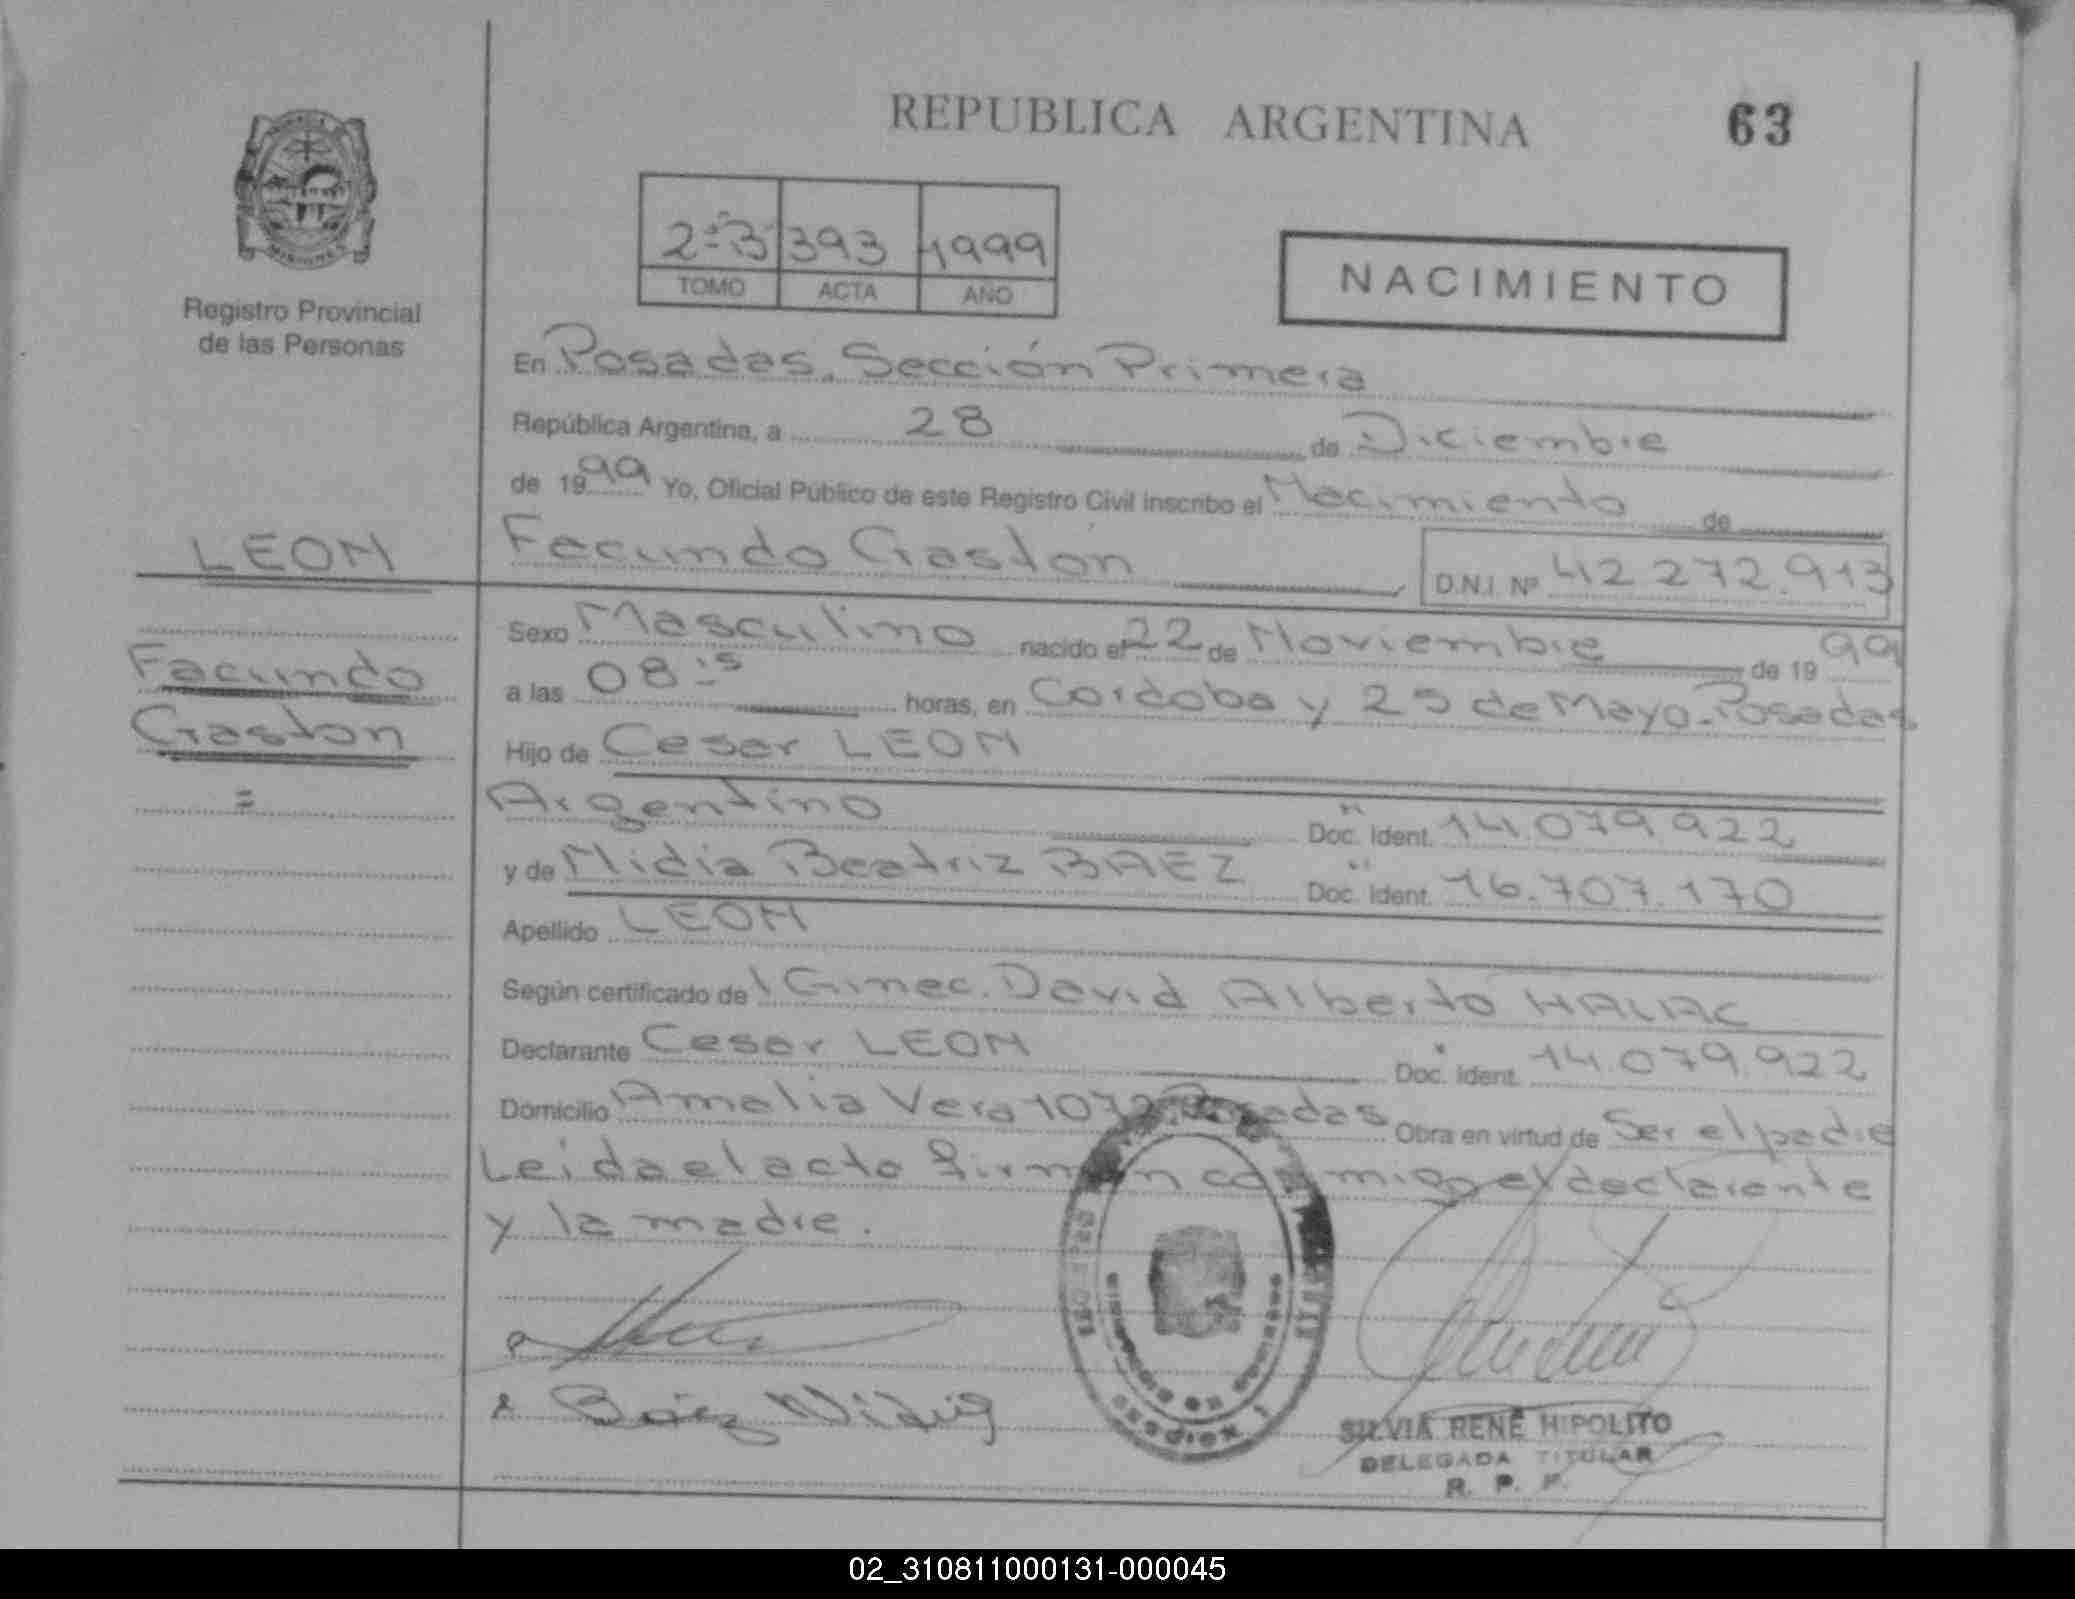 REPUBLICA ARGENTINA 63
2-3 393 1999
TOMO ACTA AÑO
NACIMIENTO
Registro Provincial
de las Personas
En Posadas, Sección Primera
República Argentina, a 28 de Diciembre
de 1999 Yo, Oficial Público de este Registro Civil inscribo el Nacimiento de
LEON
Facundo Gastón D.N.I. Nº 42.272.913
Sexo Masculino nacido el 22 de Noviembre de 1999
Facundo
a las 08:15 horas, en Cordoba y 25 de Mayo-Posadas
Gaston
Hijo de Cesar LEON
=
Argentino Doc. Ident. 14.079.922
y de Nidia Beatriz BAEZ Doc. Ident. 16.707.170
Apellido LEON
Según certificado del Ginec. David Alberto
Declarante Cesar LEON Doc. Ident. 14.079.922
Domicilio Amalia Vera 1072 Posadas Obra en virtud de Ser el padre
Leida el acta firman conmigo el declarante
y la madre.
Báez Nidia
SILVIA RENÉ HIPOLITO
DELEGADA TITULAR
R. P. P.
02_310811000131-000045